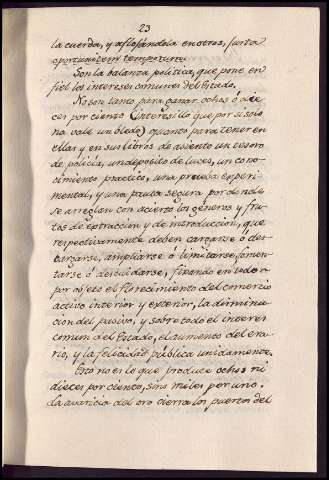 23
la cuerda, y afloxándola en otros, juxta
oportunitatem temporum.
Son la balanza politica, que pone en
fiel los intereses comunes del Estado.
No son tanto para ganar ochos ó die
ces por ciento (interesillo que por sí solo
no vale un bledo) quanto para tener en
ellas y en sus libros de asiento un tesoro
de policía, un deposito de luces, un cono-
cimiento practico, una prueba experi-
mental, y una pauta segura por donde
se arreglan con acierto los géneros y fru-
tos de extraccion y de introduccion, que
respectivamente deben cargarse ó des-
cargarse, ampliarse ó limitarse, fomen-
tarse ó descuidarse, fixando en todo
por objeto el florecimiento del comercio
activo interior y exterior, la diminu-
cion del pasivo, y sobre todo el interes
comun del Estado, el aumento del era-
rio, y la felicidad pública unidamente.
Esto no es lo que produce ochos ni
dieces por ciento, sino miles por uno.
La avaricia del oro cierra los puertos del